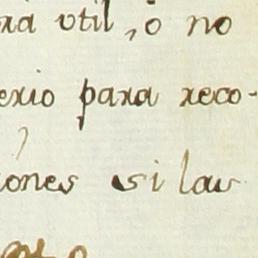 ra util, ó no
erio para reco-
ones si las